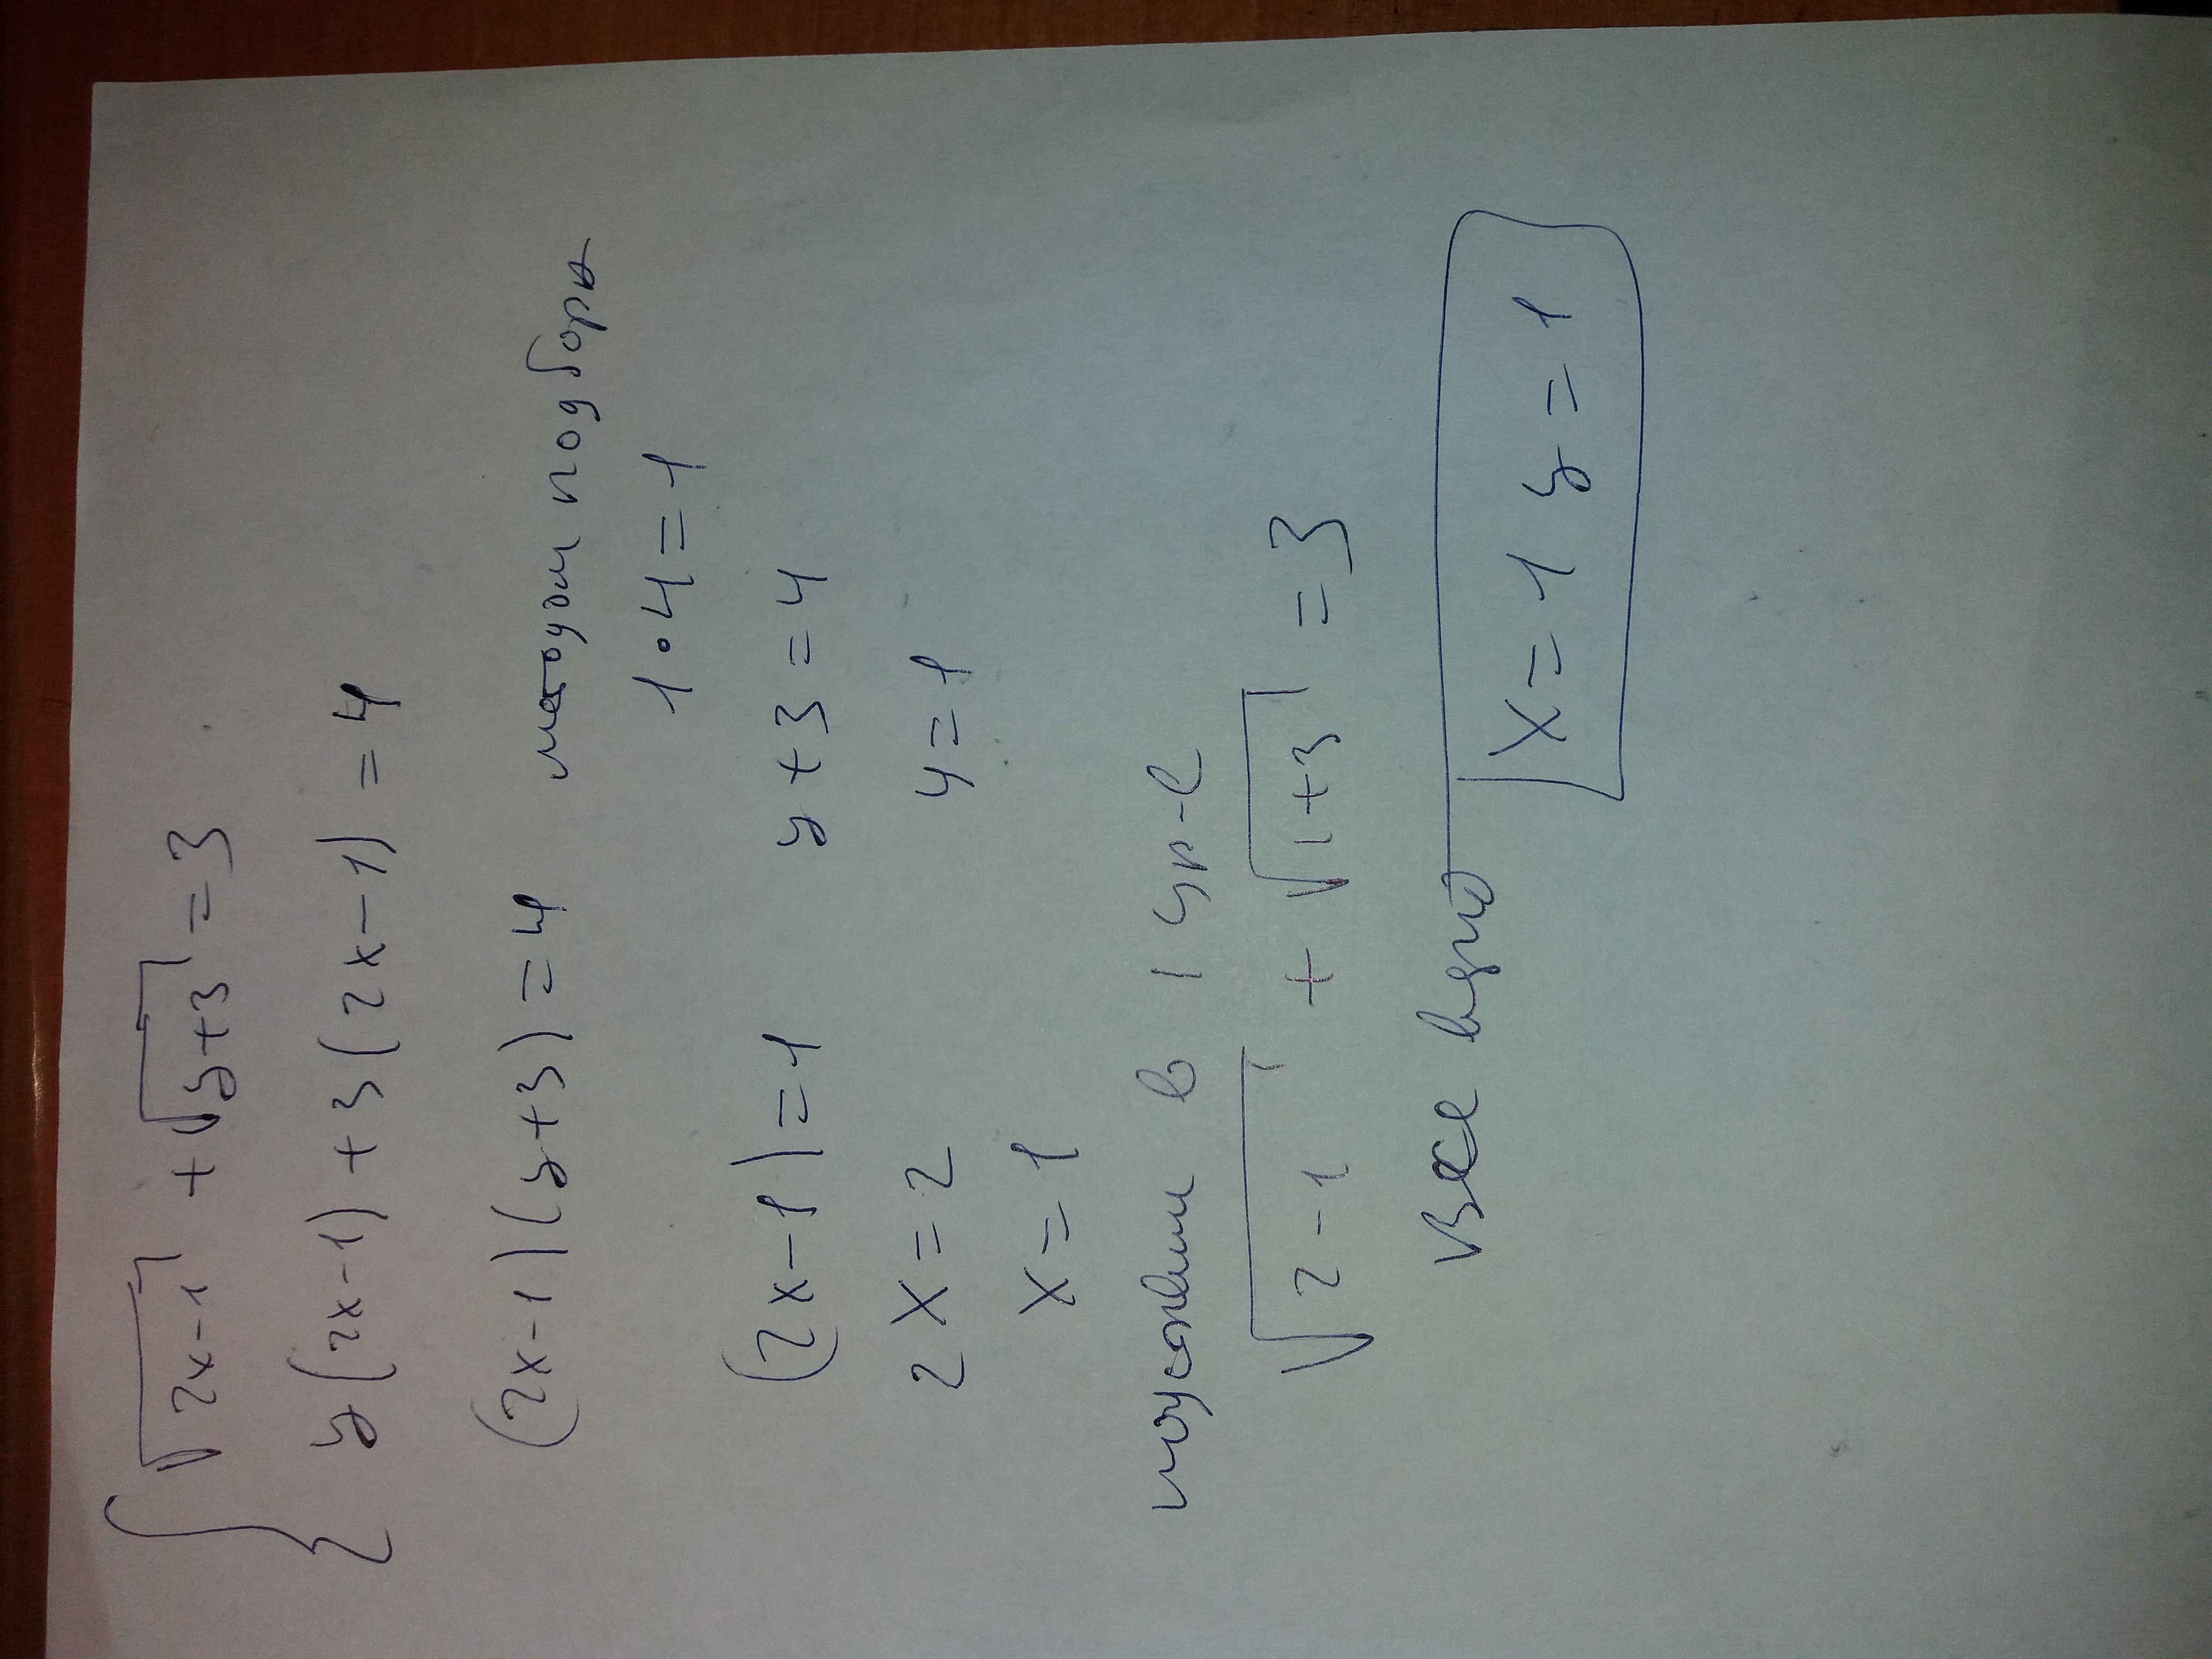 { √2x-1 + √y+3 = 3
y(2x-1) + 3(2x-1) = 4
(2x-1)(y+3) = 4 методом подбора
1·4=1
(2x-1)=1 y+3=4
2x=2 y=1
x=1
подставим в 1 ур-е
√2-1 + √1+3 = 3
все верно x=1 y=1